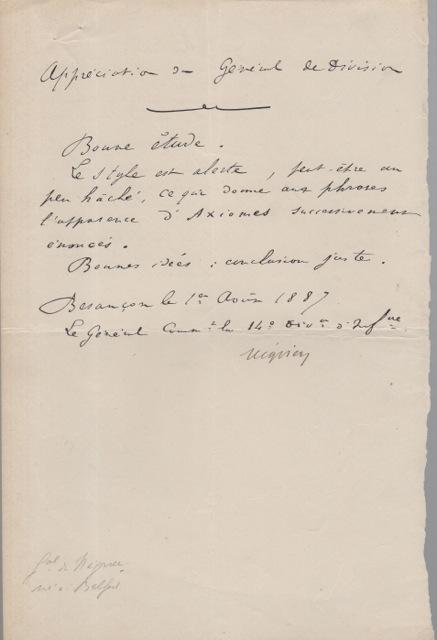 Appréciation du Général de Division
Bonne étude.
Le style est alerte, peut-être un
peu hâché, ce qui donne aux phrases
l'apparence d'Axiomes successivement
énoncés.
Bonnes idées ; conclusion juste.
Besançon le 1er Août 1887
Le Général Commt la 14e Divon d'Infrie
Négrier
Gal de Négrier
né à Belfort